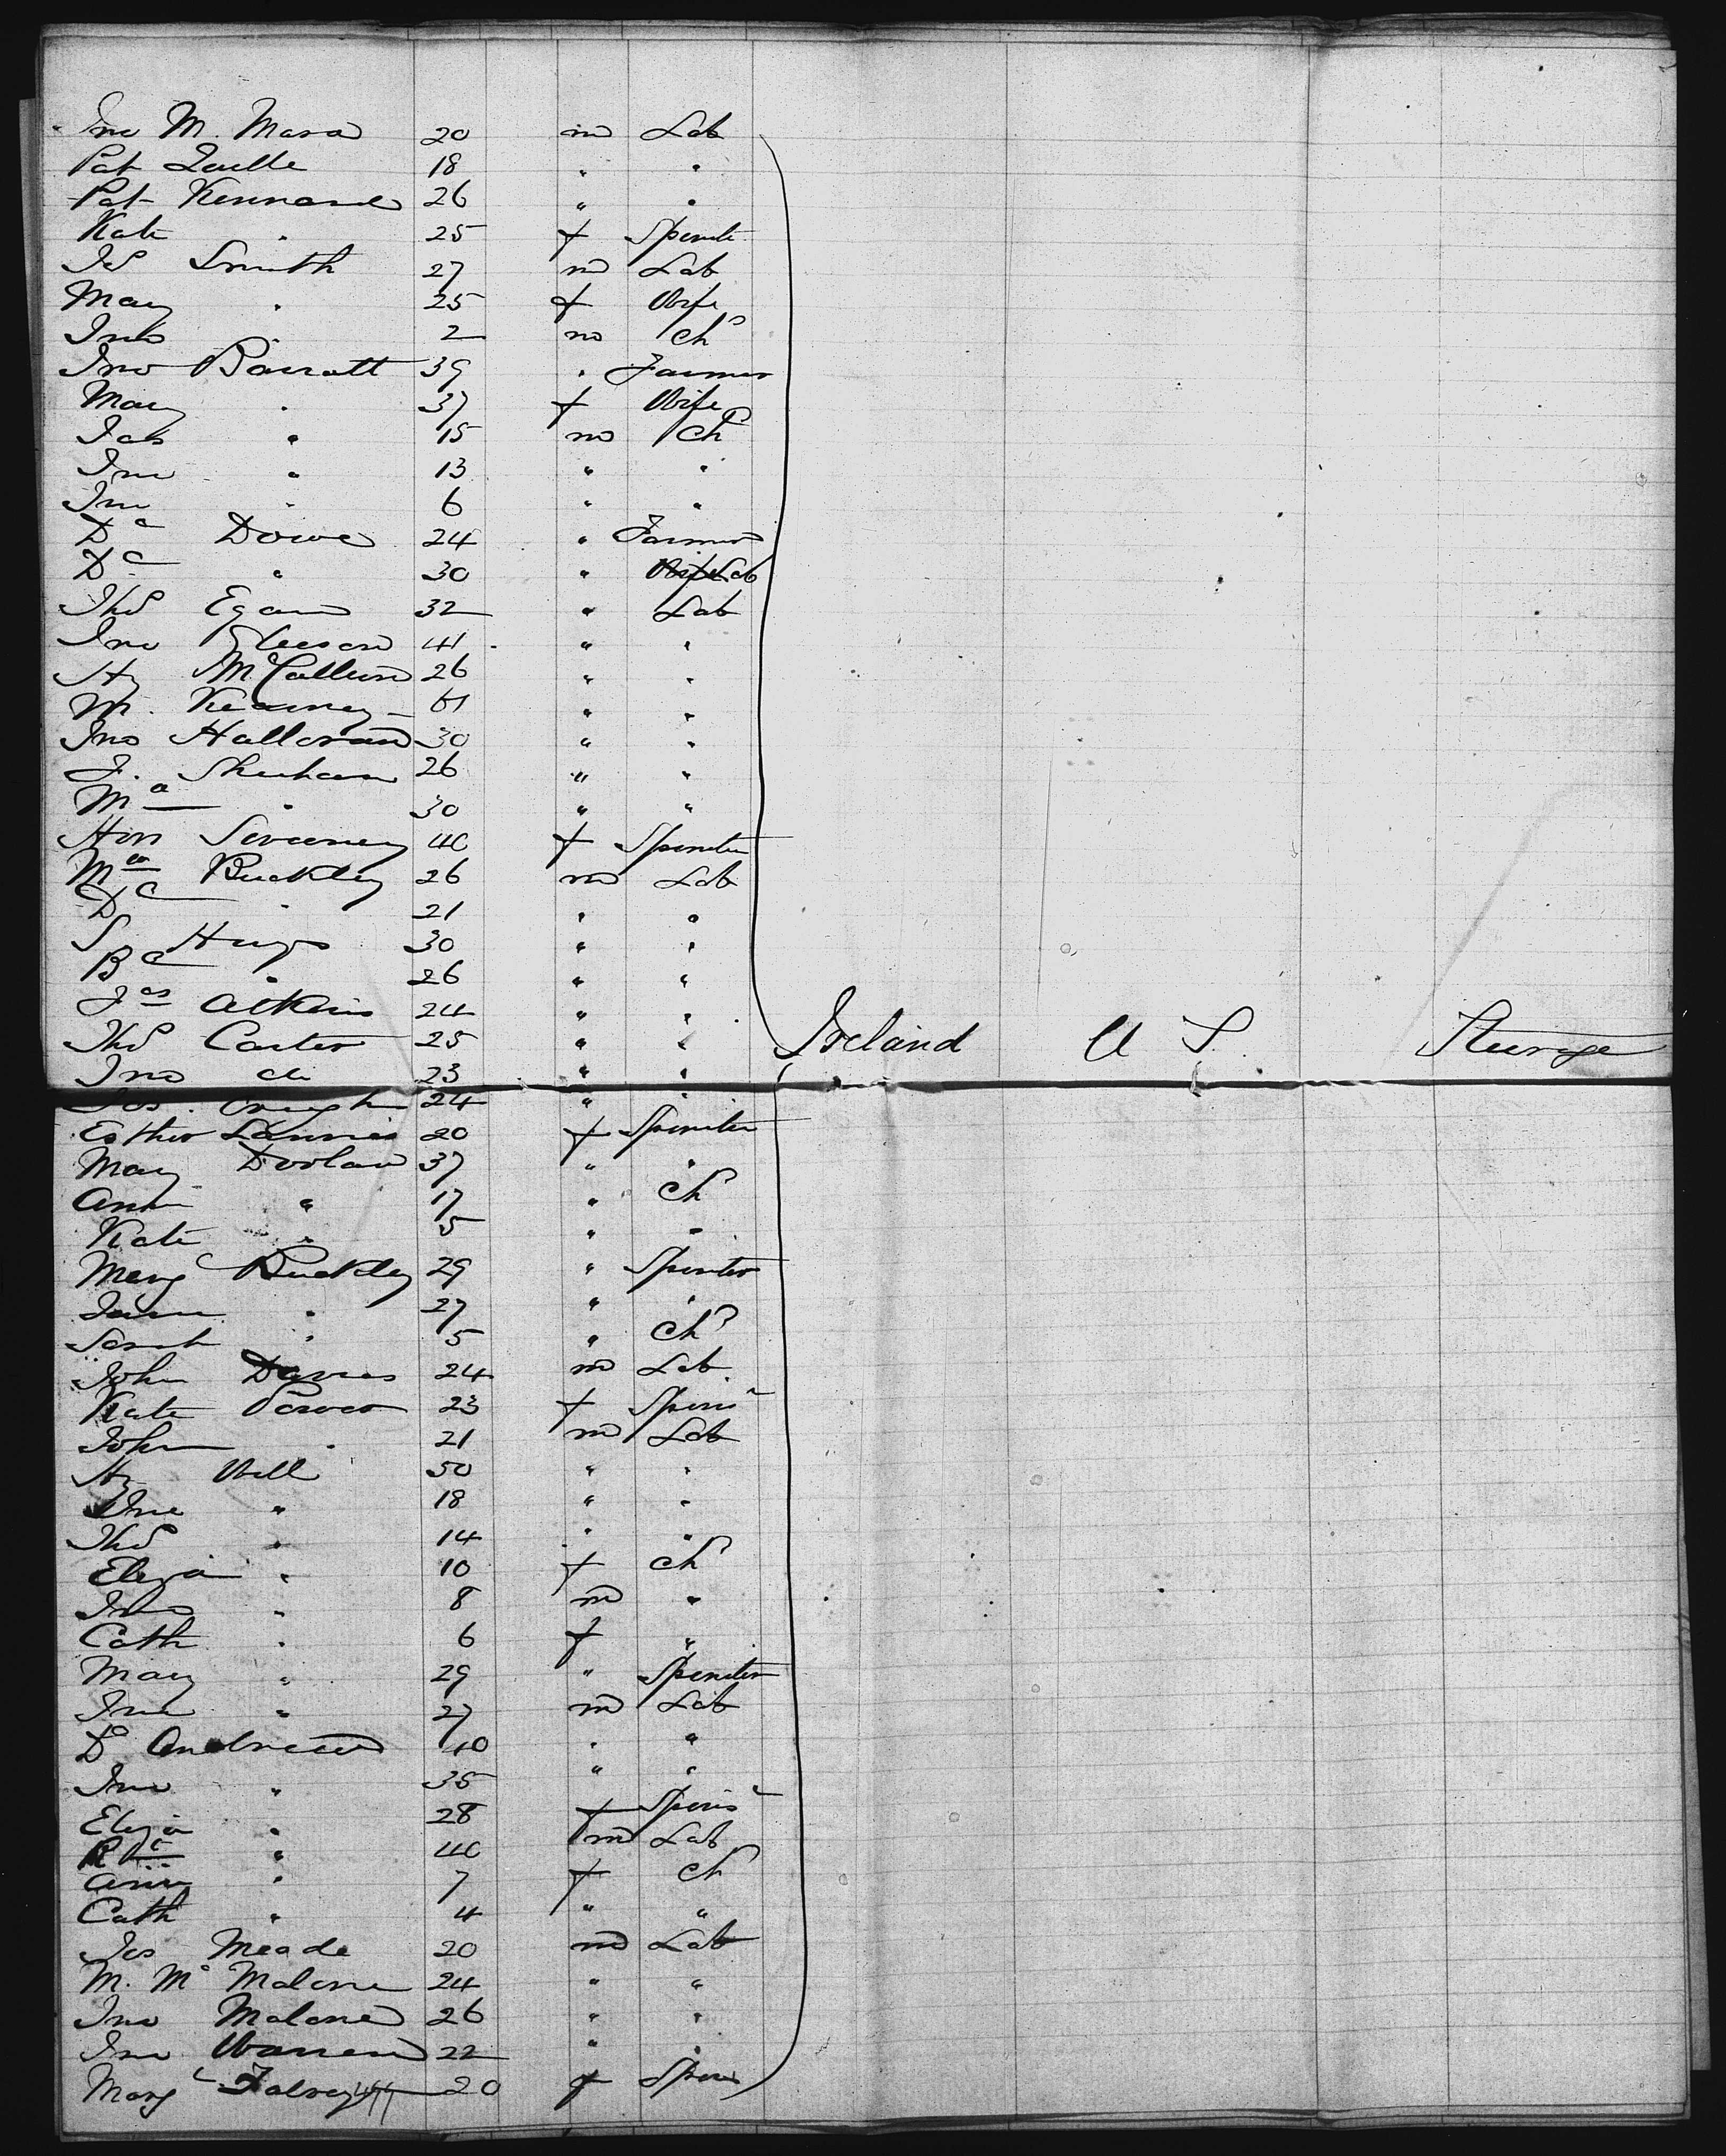 Jno M. Mara 20 m Lab
Pat 18 " "
Pat Kennard 26 " "
Kate " 25 f Spinste
Jas Smith 27 m Lab
Mary " 25 f Wife
Jno " 2 m Chd
Jno Barratt 39 " Farmer
Mary " 37 f Wife
Jas " 15 m Chd
Jno " 13 " "
Jno " 6 " "
Dl Dowe 24 " Farmer
Dl " 30 " Lab
Thos Egan 32 " Lab
Jno Gleeson 41 " "
Hy McCallum 26 " "
M. Kearney " "
Jno Halloran 30 " "
J. Sheehan 26 " "
Ml " 30 " "
Hon Sweeney 40 f Spinster
Ml Buckley 26 m Lab
Dl " 21 " "
S Hays 30 " "
" 26 " "
Jas Atkins 24 " "
Thos Carter 25 " " Ireland U S. Steerage
Jno do 23 " "
Jas. Creigh 24 " "
Esther 20 f Spinster
Mary Doolan 37 " "
Ann " 17 " Chd
Kate " 5 " "
Marg Buckley 29 " Spinster
" 27 " "
Sarah " 5 " Chd
John Davies 24 m Lab.
Kate Power 23 f Spins
John " 21 m Lab
Hy Well 50 " "
Jno " 18 " "
Thos " 14 " "
Eliza " 10 f Chd
Jno " 8 m "
Cath " 6 f "
Mary " 29 " Spinster
Jno " 27 m Lab
Dl Andrews 40 " "
Jno " 35 " "
Eliza " 28 f Spins
" 40 m Lab
Ann " 7 f Ch
Cath " 4 " "
Jas Meade 20 m Lab
M. Mc Malone 24 " "
Jno Malone 26 " "
Jno Warren 22 " "
Marg Falvey 20 f Spins